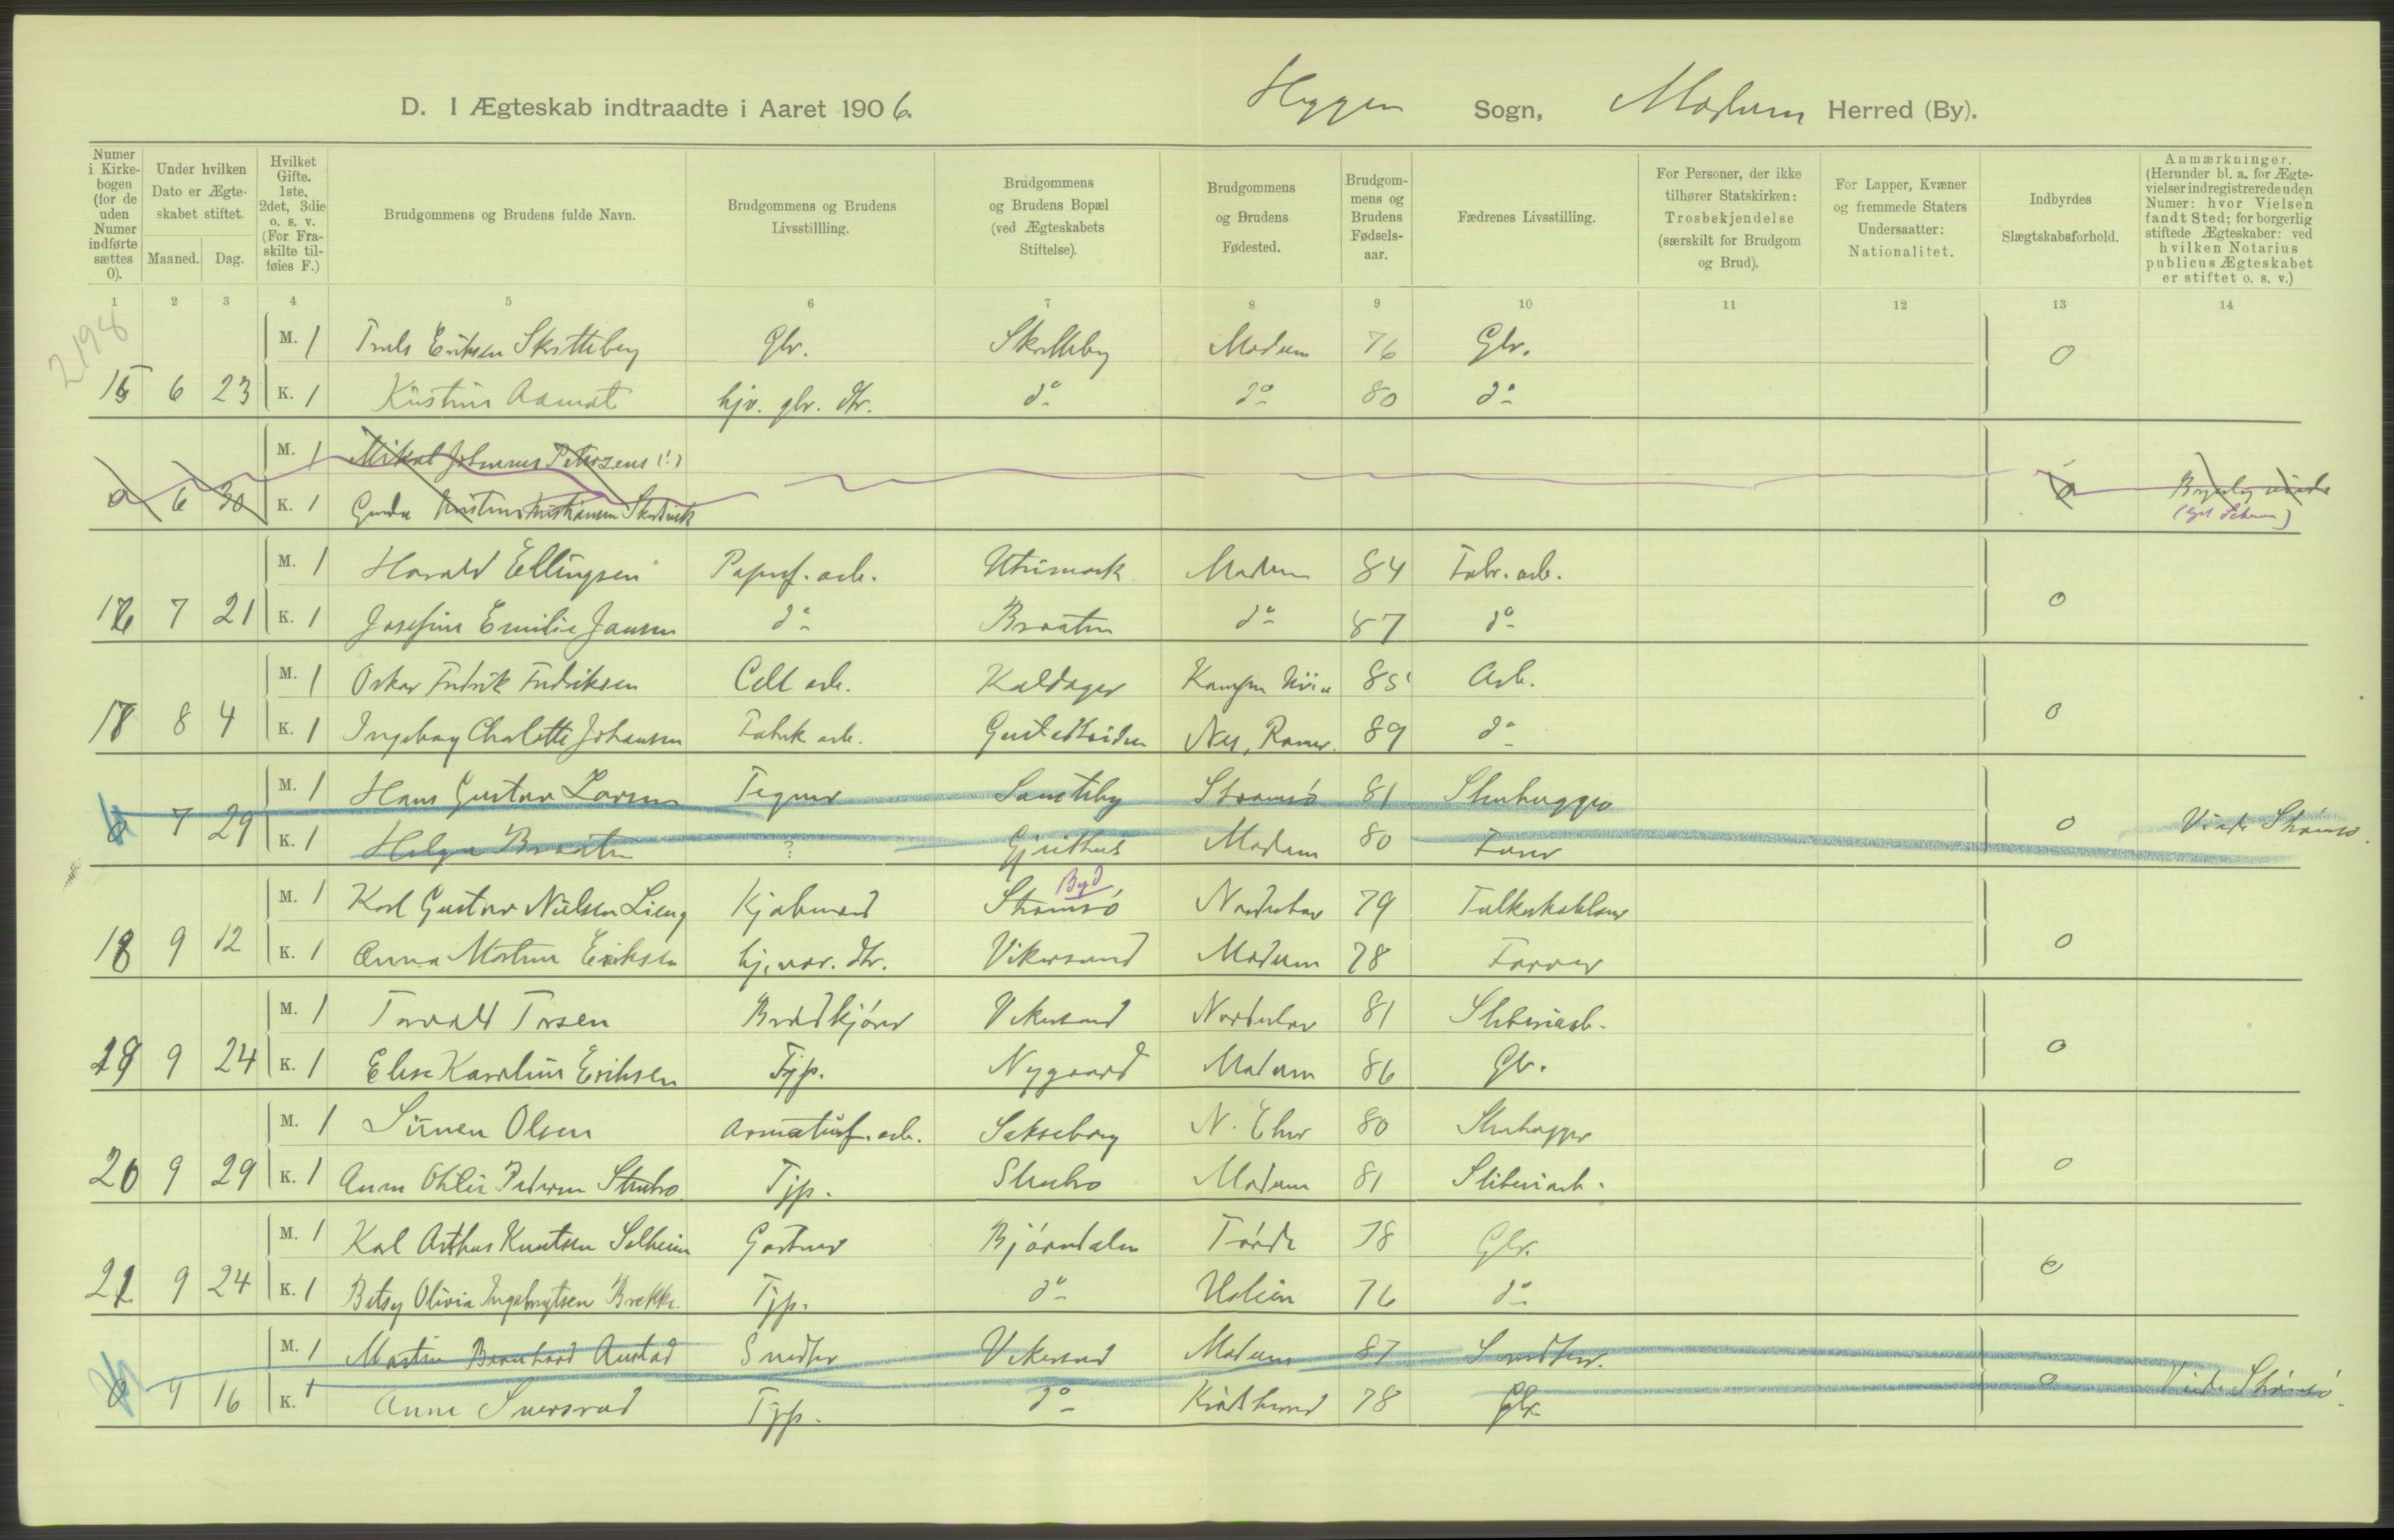 D. I Ægteskab indtraadte i Aaret 1906. Heggen Sogn, Modum Herred (By).
Numer i Kirkebogen (for de uden Numer indførte sættes 0).
Under hvilken Dato er Ægteskabet stiftet.
Maaned. Dag.
Hvilket Gifte. 1ste, 2det, 3die o. s. v. (For Fraskilte tilføies F.)
Brudgommens og Brudens fulde Navn.
Brudgommens og Brudens Livsstillling.
Brudgommens og Brudens Bopæl (ved Ægteskabets Stiftelse).
Brudgommens og Brudens Fødested.
Brudgommens og Brudens Fødselsaar.
Fædrenes Livsstilling.
For Personer, der ikke tilhører Statskirken: Trosbekjendelse (særskilt for Brudgom og Brud).
For Lapper, Kvæner og fremmede Staters Undersaatter: Nationalitet.
Indbyrdes Slægtskabsforhold.
Anmærkninger. (Herunder bl. a. for Ægtevielser indregistrerede uden Numer: hvor Vielsen fandt Sted; for borgerlig stiftede Ægteskaber: ved hvilken Notarius publicus Ægteskabet er stiftet o. s. v.)
1 2 3 4 5 6 7 8 9 10 11 12 13 14
2198
M. 1 Truls Eriksen Skretteberg Glr. Modum 76 Glr. 0
15 6 23 K. 1 Kristine Aamot hjv. glr. dtr. do do 80 do
M. 1 Mikal Johannes Petersens (!)
0 6 30 K. 1 Gunda Kristine Kristiansen 0 Borgerlig viede
M. 1 Harald Ellingsen Papirf. arb. Modum 84 Fabr. arb. 0
16 7 21 K. 1 Josefine Emilie Jansen do Braaten do 87 do
M. 1 Oskar Fredrik Fredriksen Cell arb. Kaldager 85 Arb. 0
17 8 4 K. 1 Ingeborg Charlotte Johansen Fabrik arb. Nes, Romer. 89 do
M. 1 Hans Gustav Larsen Tegner Strømsø 81 Stenhugger 0
0 7 29 K. 1 Helga Braaten ? Gjeithus Modum 80 Farver Viede Strømsø.
M. 1 Karl Gustav Nielsen Lieng Kjøbmand Strømsø Byd Norderhov 79 0
18 9 12 K. 1 Anna Martine Eriksen hj. var. dtr. Vikersund Modum 78 Farver
M. 1 Torvald Torsen Brødkjører Vikersund Norderhov 81 Sliberiarb. 0
19 9 24 K. 1 Elise Karoline Eriksen Tjp. Nygaard Modum 86 Glr.
M. 1 Simen Olsen Armaturf. arb. Sakseborg N. Eker 80 Stenhugger 0
20 9 29 K. 1 Anna Otilie Pedersen Stenbro Tjp. Stenbro Modum 81 Sliberiarb.
M. 1 Karl Arthur Knutsen Solheim Gartner Bjørndalen Førde 78 Glr. 0
21 9 24 K. 1 Betsy Olivia Ingebrigtsen Brekke. Tjp. do 76 do
M. 1 Martin Bernhard Austad Snedker Vikersund Modum 87 Snedker. 0
0 9 16 K. 1 Anna Tjp. do Krødsherred 78 Glr. Viede Strømsø.